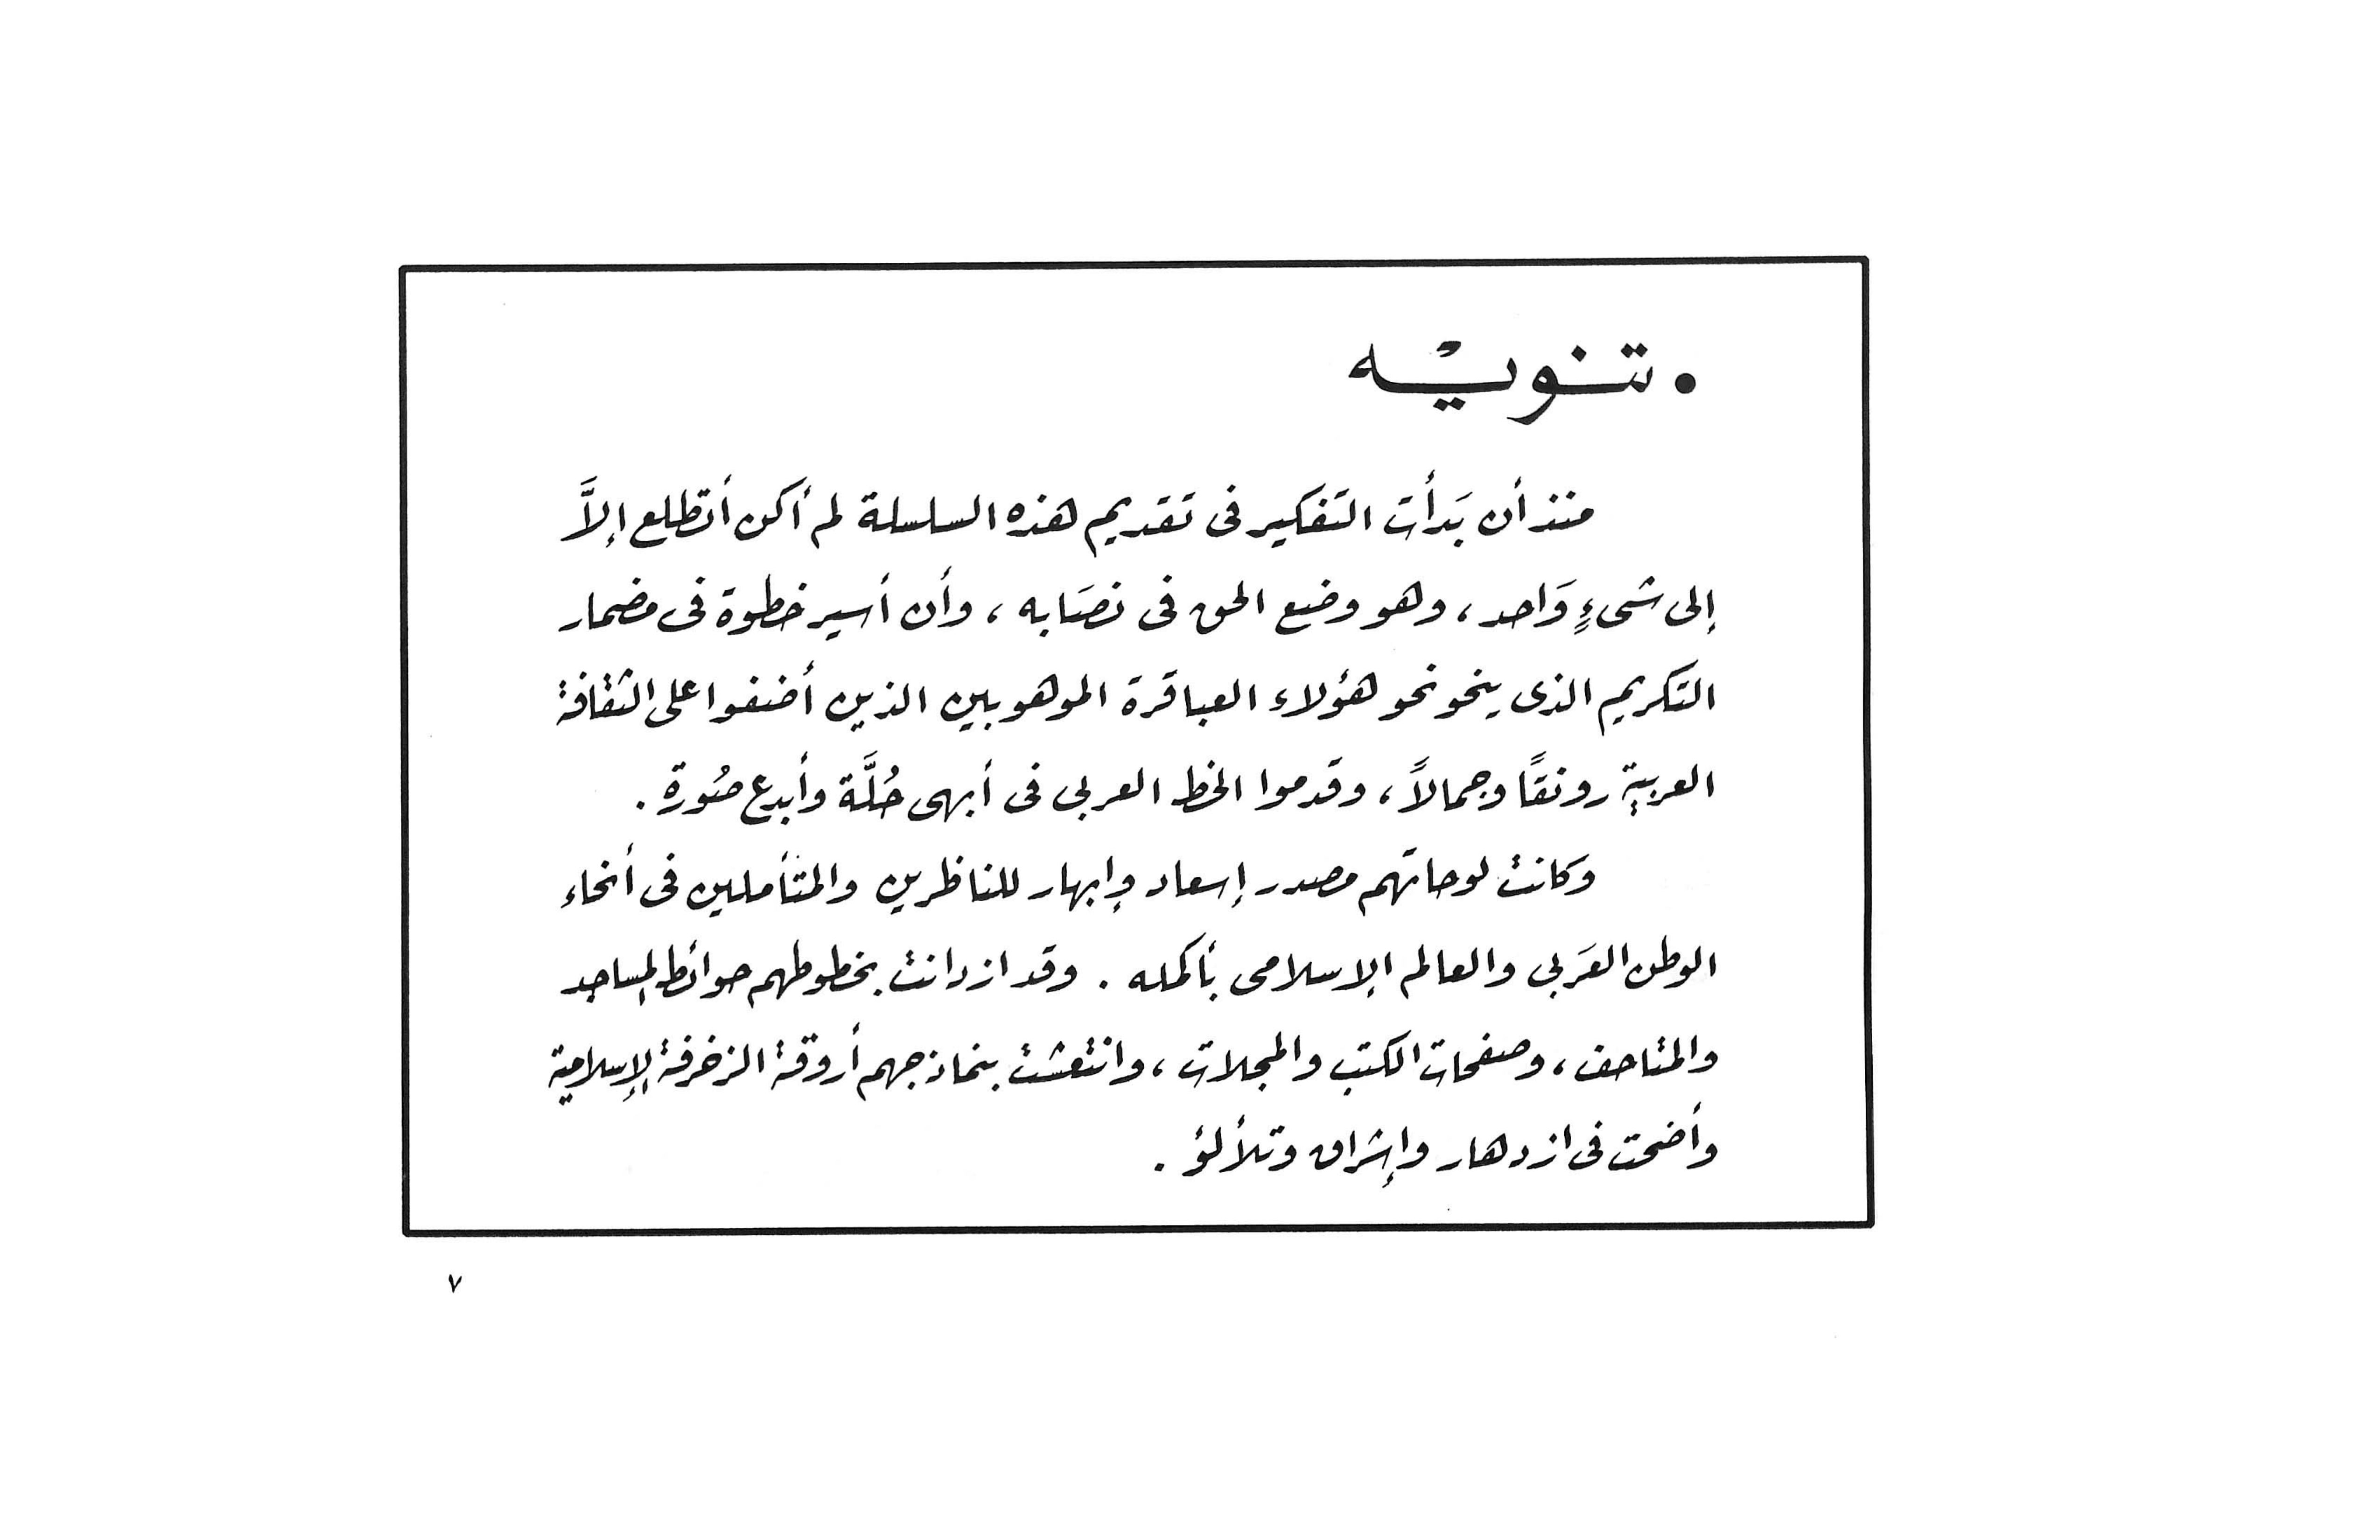 • تنويْه
منذ أن بَدأت التفكير فى تقديم هذه السلسلة لم أكن أتطلع إلاَّ
إلى شىءٍ وَاحد، وهو وضع الحق فى نصَابه، وأن أسير خطوة فى مضمار
التكريم الذى ينحو نحو هؤلاء العباقرة الموهوبين الذين أضفوا على الثقافة
العربية رونقًا وجمالاً، وقدموا الخط العربى فى أبهى حُلَّة وأبدع صُورة.
وكانت لوحاتهم مصدر إسعاد وإبهار للناظرين والمتأملين فى أنحاء
الوطن العَربى والعالم الإسلامى بأكمله. وقد ازدانت بخطوطهم حوائط المساجد
والمتاحف، وصفحات الكتب والمجلات، وانتعشت بنماذجهم أروقة الزخرفة الإسلامية
وأضحت فى ازدهار وإشراق وتلألؤ.
٧